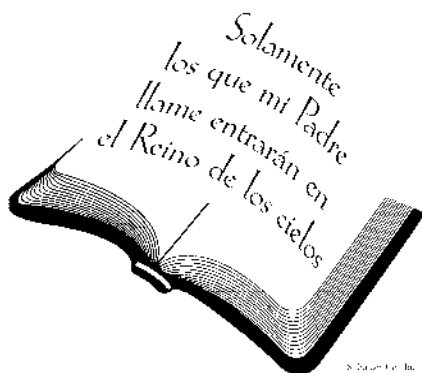 Solamente
los que mi Padre
llame entrarán en
el Reino de los cielos